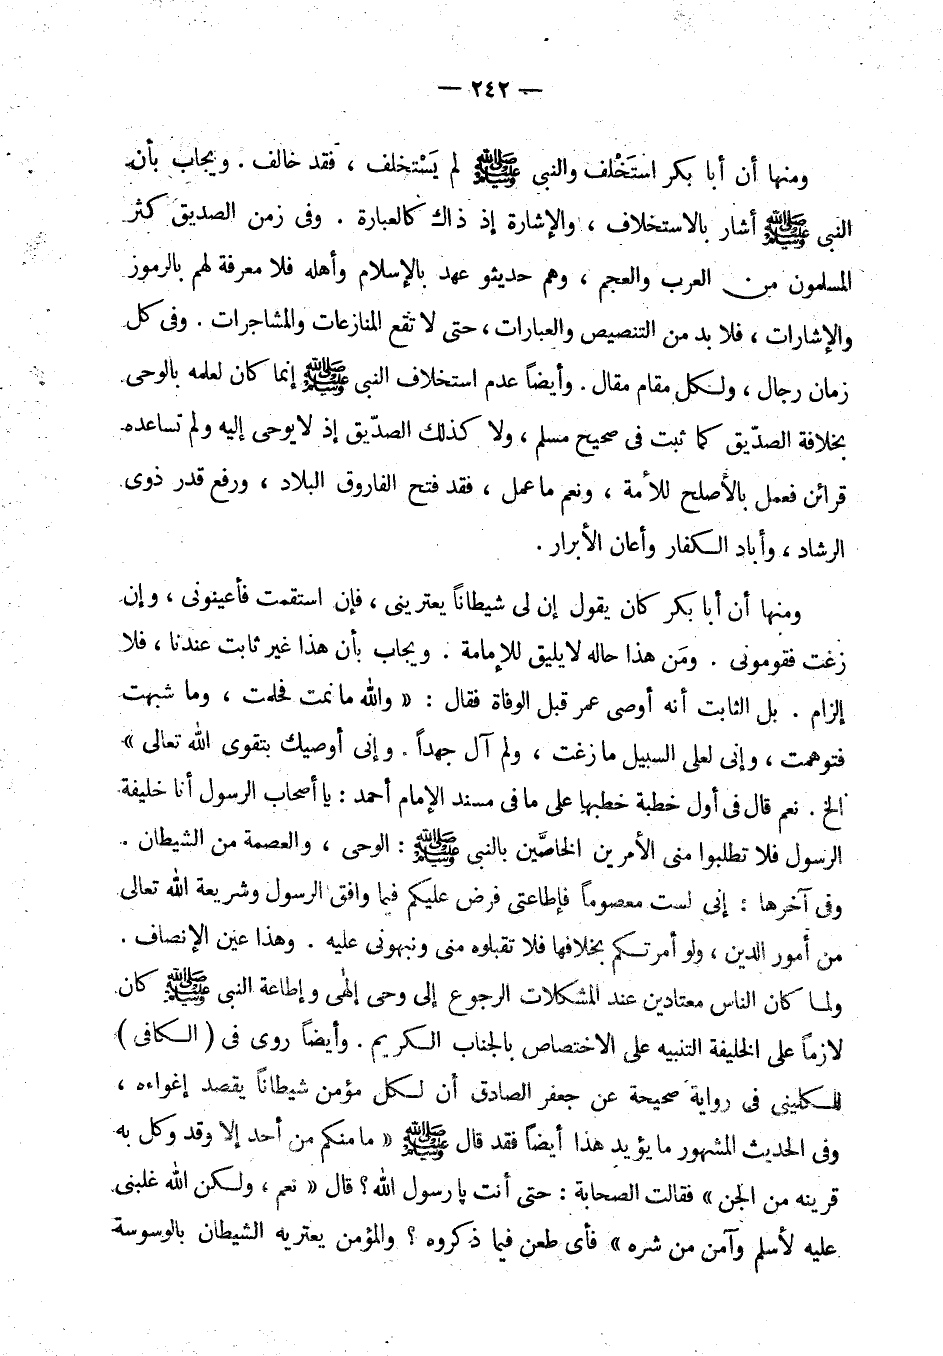 — ٢٤٢ —
ومنها أن أبا بكر استَخْلف والنبى ﷺ لم يَسْتخلف ، فقد خالف . ويجاب بأن
النبى ﷺ أشار بالاستخلاف ، والإشارة إذ ذاك كالعبارة . وفى زمن الصديق كثر
المسلمون من العرب والعجم ، وهم حديثو عهد بالإسلام وأهله فلا معرفة لهم بالرموز
والإشارات ، فلا بد من التنصيص والعبارات ، حتى لا تقع المنازعات والمشاجرات . وفى كل
زمان رجال ، ولكل مقام مقال . وأيضاً عدم استخلاف النبى ﷺ إنما كان لعلمه بالوحى
بخلافة الصدّيق كما ثبت فى صحيح مسلم ، ولا كذلك الصدّيق إذ لايوحى إليه ولم تساعده
قرائن فعمل بالأصلح للأمة ، ونعم ماعمل ، فقد فتح الفاروق البلاد ، ورفع قدر ذوى
الرشاد ، وأباد الكفار وأعان الأبرار .
ومنها أن أبا بكر كان يقول إن لى شيطاناً يعترينى ، فإن استقمت فأعينونى ، وإن
زغت فقومونى . ومَن هذا حاله لايليق للإمامة . ويجاب بأن هذا غير ثابت عندنا ، فلا
إلزام . بل الثابت أنه أوصى عمر قبل الوفاة فقال : « والله مانمت فحلمت ، وما شبهت
فتوهمت ، وإنى لعلى السبيل مازغت ، ولم آل جهداً . وإنى أوصيك بتقوى الله تعالى »
الخ . نعم قال فى أول خطبة خطبها على مافى مسند الإمام أحمد : يا أصحاب الرسول أنا خليفة
الرسول فلا تطلبوا منى الأمرين الخاصَّين بالنبى ﷺ : الوحى ، والعصمة من الشيطان .
وفى آخرها : إنى لست معصوماً فإطاعتى فرض عليكم فيما وافق الرسول وشريعة الله تعالى
من أمور الدين ، ولو أمرتكم بخلافها فلا تقبلوه منى ونبهونى عليه . وهذا عين الإنصاف .
ولما كان الناس معتادين عند المشكلات الرجوع إلى وحى إلهى وإطاعة النبى ﷺ كان
لازماً على الخليفة التنبيه على الاختصاص بالجناب الكريم . وأيضاً روى فى ( الكافى )
للكلينى فى رواية صحيحة عن جعفر الصادق أن لكل مؤمن شيطاناً يقصد إغواءه ،
وفى الحديث المشهور مايؤيد هذا أيضاً فقد قال ﷺ « مامنكم من أحد إلا وقد وكل به
قرينه من الجن » فقالت الصحابة : حتى أنت يارسول الله؟ قال « نعم ، ولكن الله غلبنى
عليه لأسلم وآمن من شره » فأى طعن فيما ذكروه ؟ والمؤمن يعتريه الشيطان بالوسوسة